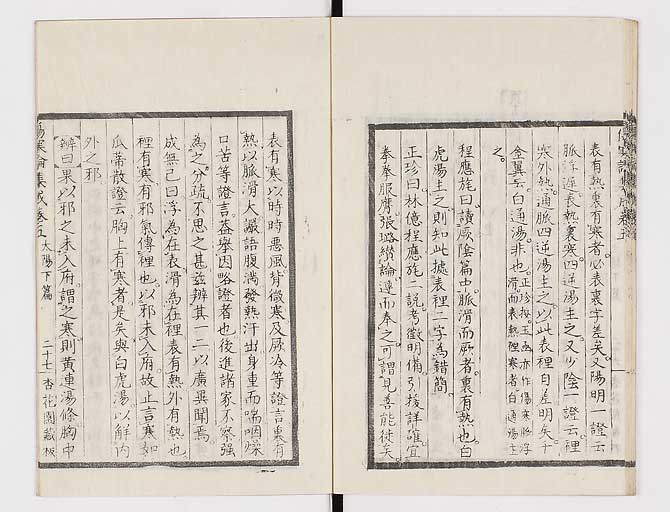 表有熱裏有寒者必表裏字差矣又陽明一證云
脈浮遲表熱裏寒四逆湯主之又少陰一證云裡
寒外熱通脈四逆湯主之以此表裡自差明矣千
金翼云白通湯非也正珍按玉函亦作傷寒脈浮
滑而表熱裡寒者白通湯主
之
程應旄曰讀厥陰篇中脈滑而厥者裏有熱也白
虎湯主之則知此據表裡二字為錯簡
正珍曰林億程應旄二說考徵明備引援詳確宜
拳拳服膺張璐纘論連而奉之可謂見善能徙矣
傷寒論集成卷五 太陽下篇 二十七 杏花園藏板
表有寒以時時惡風背微寒及厥冷等證言裏有
熱以脈滑大讝語腹滿發熱汗出身重而喘咽燥
口苦等證言蓋舉因略證者也後進諸家不察強
為之分疏不思之甚茲辨其一二以廣異聞焉
成無己曰浮為在表滑為在裡表有熱外有熱也
裡有寒有邪氣傳裡也以邪未入府故止言寒如
瓜蒂散證云胸上有寒者是矣與白虎湯以解內
外之邪
辨曰果以邪之未入府謂之寒則黃連湯條胸中